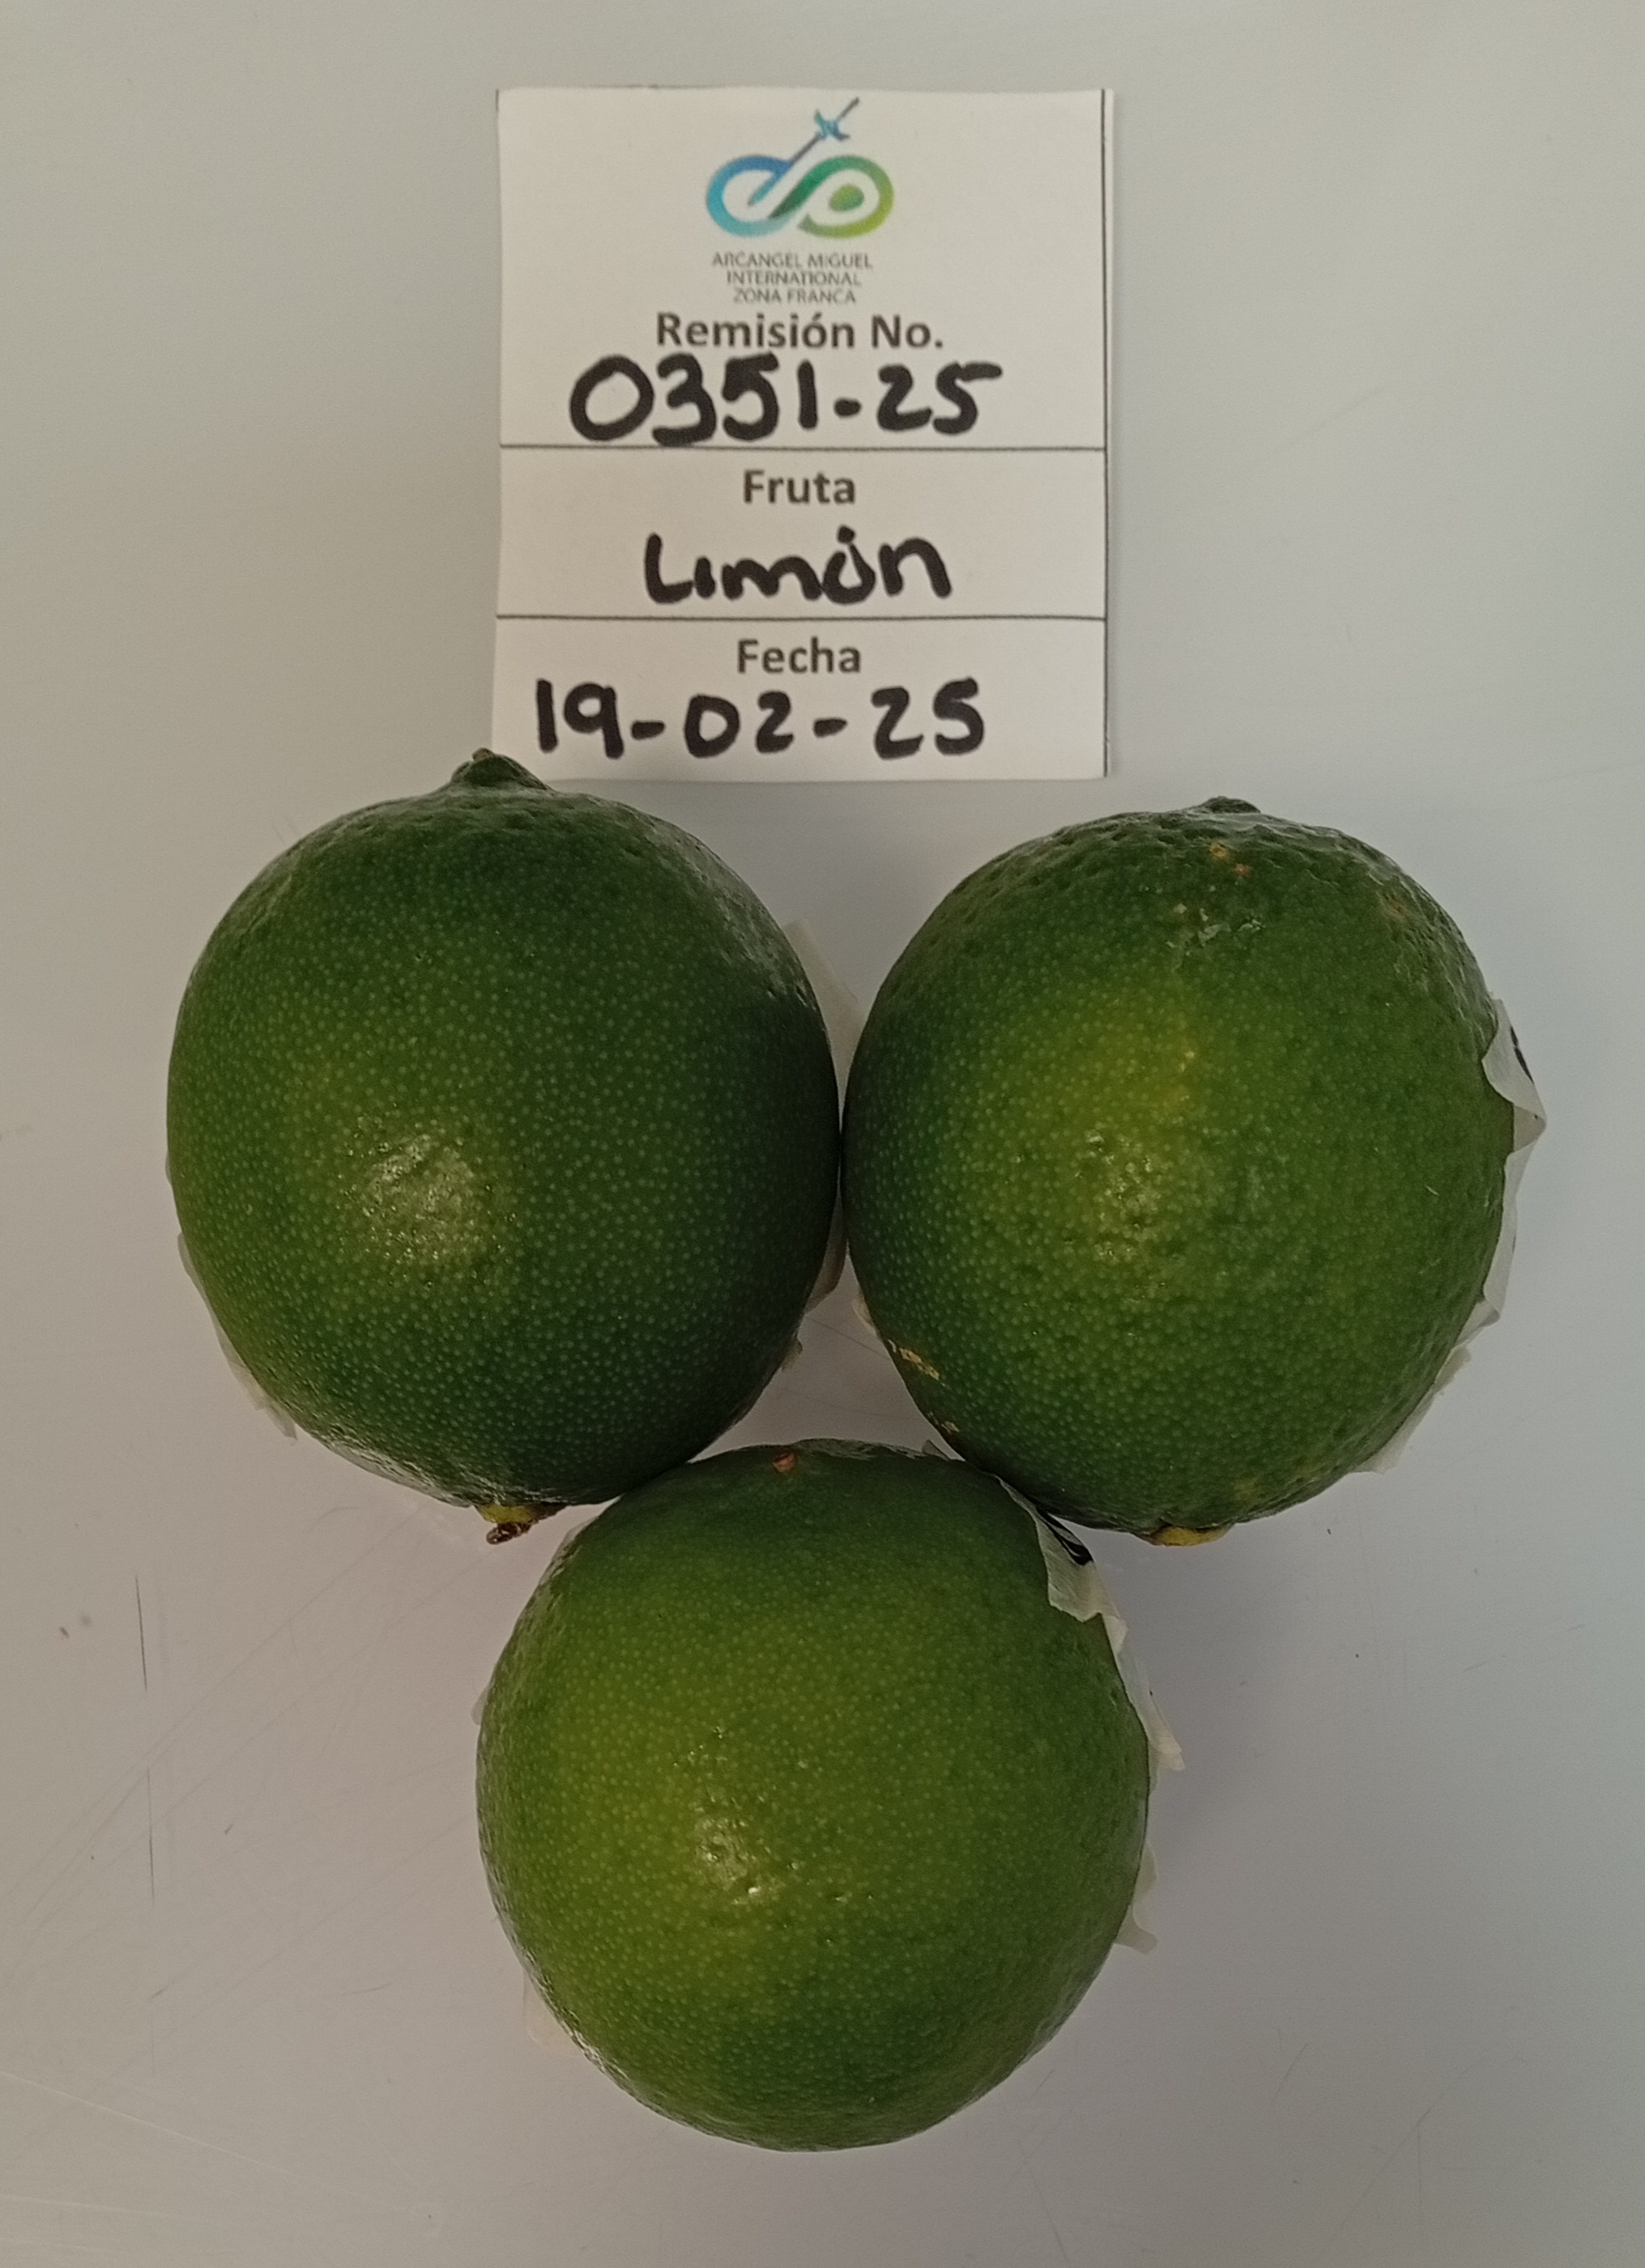 ARCANGEL MIGUEL
INTERNATIONAL
ZONA FRANCA
Remisión No.
0351-25
Fruta
Limón
Fecha
19-02-25